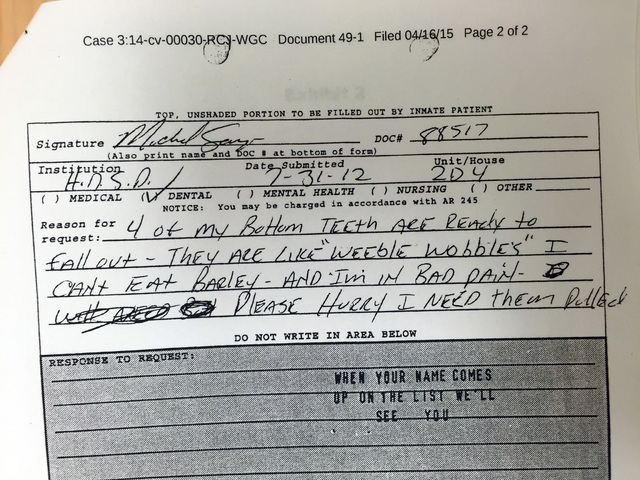 Case 3:14-cv-00030-RCJ-WGC Document 49-1 Filed 04/16/15 Page 2 of 2
TOP, UNSHADED PORTION TO BE FILLED OUT BY INMATE PATIENT
Signature DOC# 88517
(Also print name and DOC # at bottom of form)
Institution Date Submitted Unit/House
H.D.S.P. 7-31-12 2D4
( ) MEDICAL (✓) DENTAL ( ) MENTAL HEALTH ( ) NURSING ( ) OTHER
NOTICE: You may be charged in accordance with AR 245
Reason for request: 4 of my Bottom TEETH ARE READY to
fall out - THEY ARE LIKE "WEEBLE WOBBLES" I
CAN'T EAT BARLEY - AND I'm IN BAD PAIN-
PLEASE HURRY I NEED them Pulled
DO NOT WRITE IN AREA BELOW
RESPONSE TO REQUEST:
WHEN YOUR NAME COMES
UP ON THE LIST WE'LL
SEE YOU